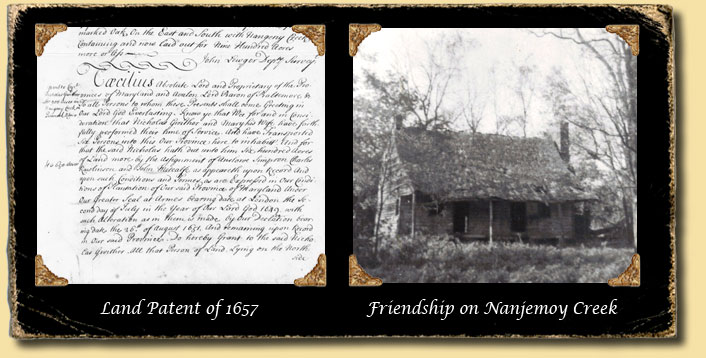 marked Oak, On the East and South with Nangemy Creek
Containing and now Laid out for Nine Hundred Acres
more or less
John Lewger Dep.ty Survey.r
Cæcilius Absolute Lord and Proprietary of the Pro-
vinces of Maryland and Avalon Lord Baron of Baltimore, to
all Persons to whom these Presents shall come Greeting in
our Lord God Everlasting. Know ye that Wee for and in Consi-
deration that Nicholas Gwither and Mary his Wife have faith
fully performed their time of Service And have Transported
Six Persons into this Our Province here to inhabit And for
that the said Nicholas hath due unto him Six hundred Acres
of Land more by the Assignment of Simpson Charles
Rawlinson and John Metcalfe as appeareth upon Record And
upon such Conditions and Termes as are Expressed in Our Condi
tions of Plantation of Our said Province of Maryland Under
Our Greater Seal at Armes bearing date at London the Se-
cond day of July in the Year of Our Lord God 1649 with
such Alteration as in them is made by Our Declaration bear
ing date the 26th of August 1651 And remaining upon Record
in Our said Province Do hereby Grant to the said Nicho
las Gwither All that Parcel of Land Lying on the North
side
Land Patent of 1657
Friendship on Nanjemoy Creek